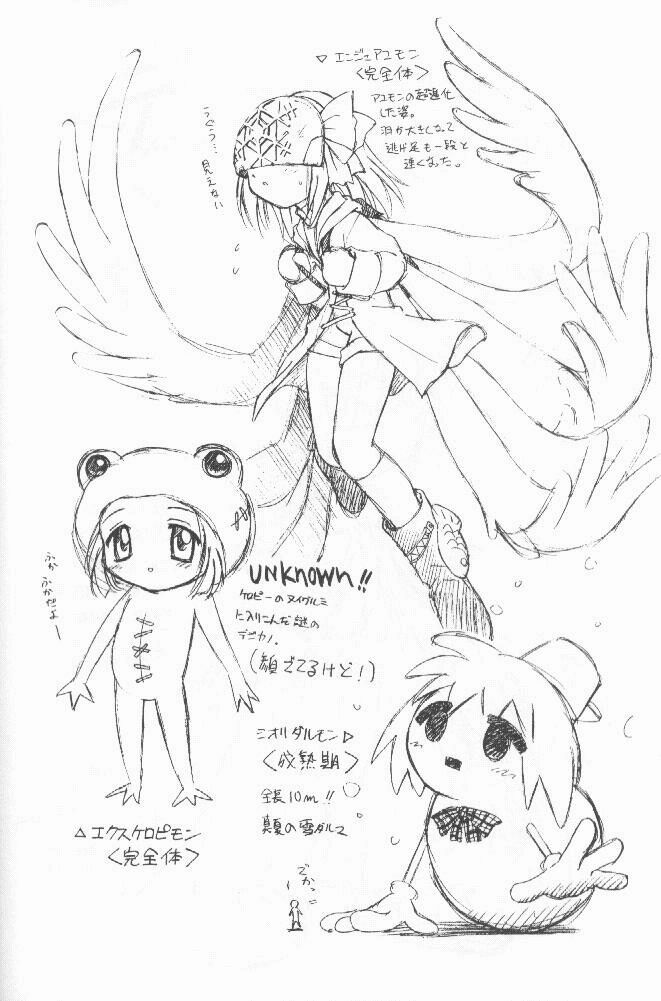 ▽ エンジェアユモン
〈完全体〉
アユモンの超進化
した姿。
羽が大きくなって
逃げ足も一段と
速くなった。
うぐぅ… 見えない
ぶかぶかだよー
UNKNOWN!!
ケロピーのヌイグルミ
に入りこんだ謎の
デジカノ。
(顔でてるけど!)
△エクスケロピモン
〈完全体〉
ミオリダルモン▷
〈成熟期〉
全長10m!!
真夏の雪ダルマ
でかっ